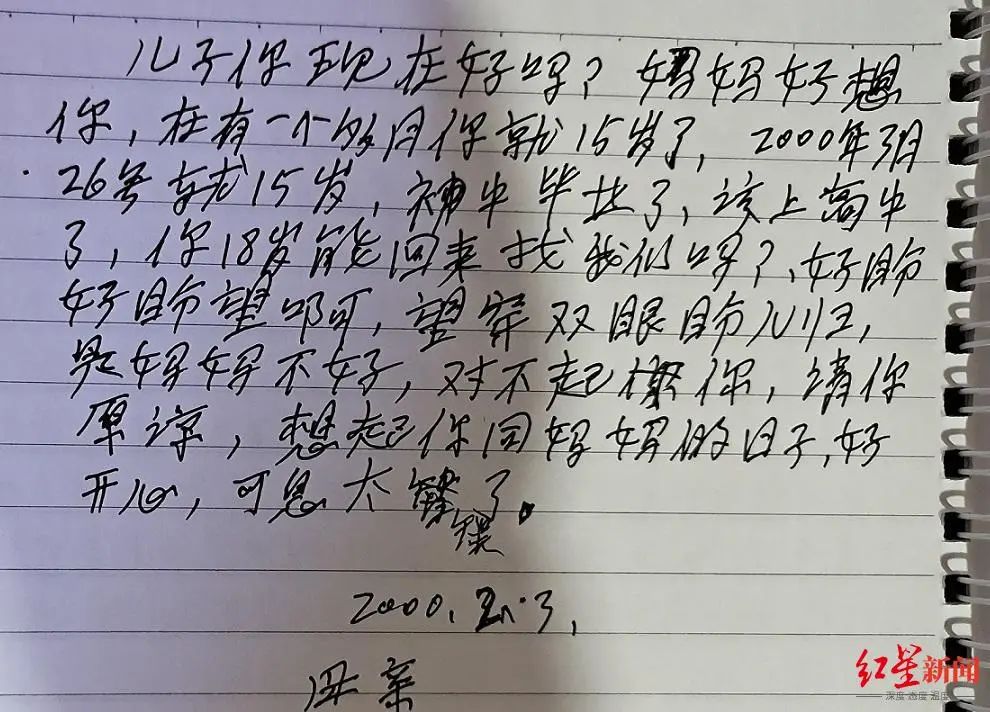 儿子你现在好吗？妈妈好想
你，在有一个多月你就15岁了，2000年3月
26号就15岁，初中毕业了，该上高中
了，你18岁能回来找我们吗？，好盼
好盼望啊可，望穿双眼盼儿归，
是妈妈不好，对不起你，请你
原谅，想起你同妈妈的日子，好
开心，可息太短了。
2000.2.3，
母亲
红星新闻
深度 态度 温度